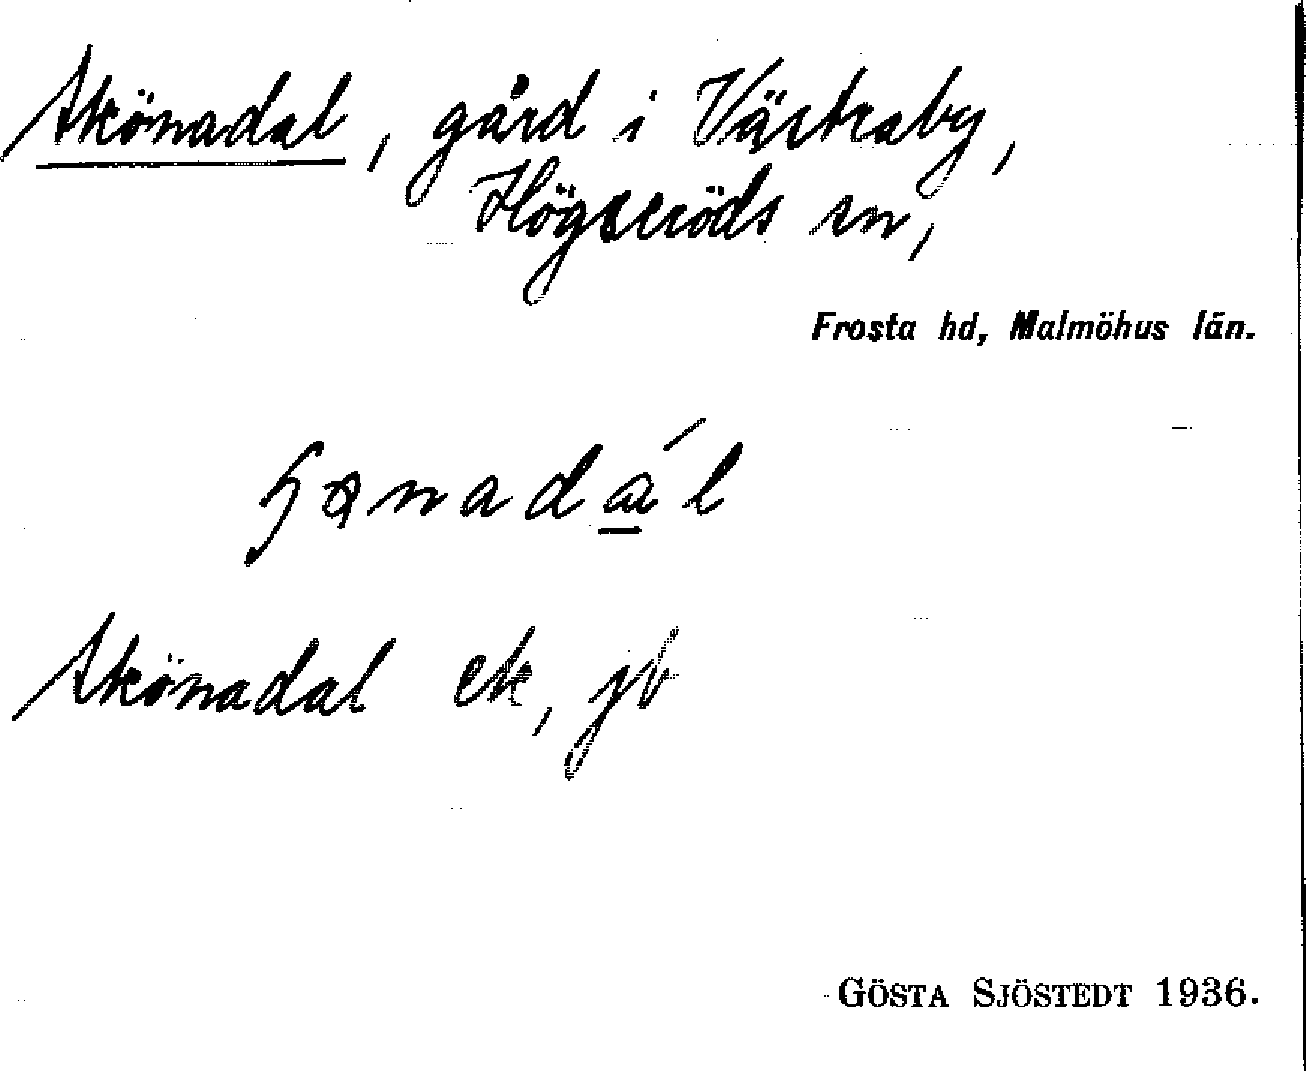 Skönadal, gård i Västraby,
Högseröds sn,
Frosta hd, Malmöhus län.
Skönadal ek, jb
GÖSTA SJÖSTEDT 1936.